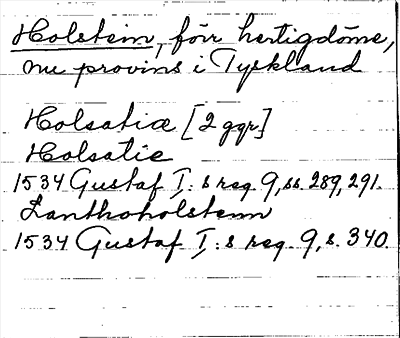 Holstein, förr hertigdöme,
nu provins i Tyskland
Holsatiæ [2 ggr]
Holsatie
1534 Gustaf I:s reg. 9, ss. 289, 291.
Lantthoholstenn
1534 Gustaf I:s reg. 9, s. 340.